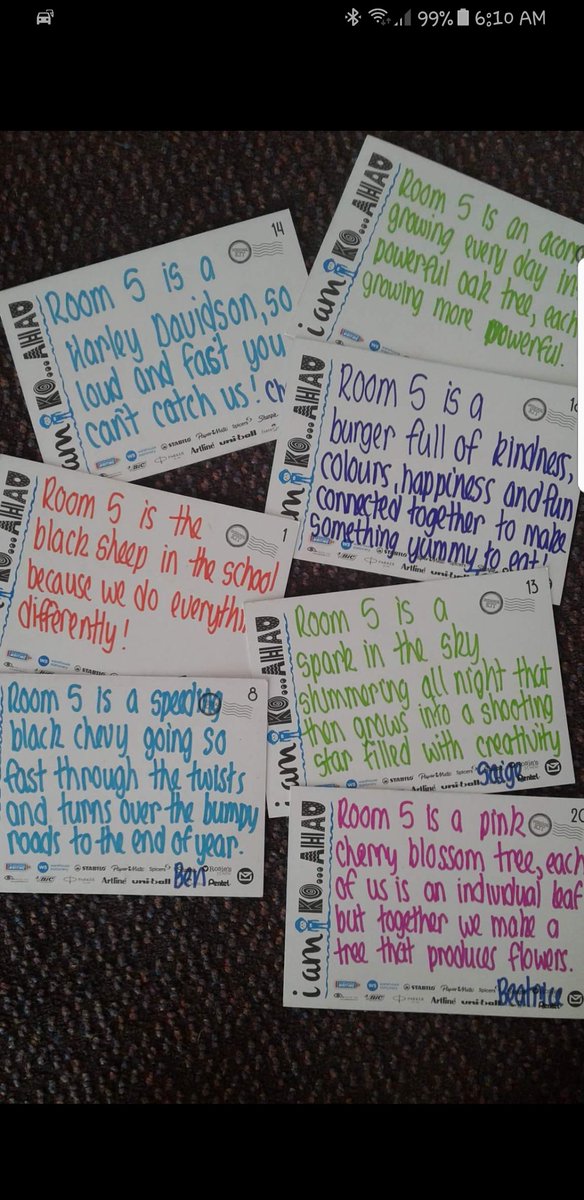 99% 6:10 AM
i am KO...AHAU
Room 5 is an acorn
growing every day in
powerful oak tree, each
growing more powerful.
14
i am KO...AHAU
Room 5 is a
Harley Davidson, so
loud and fast you
can't catch us!
WS STABILO Paper Mate Spicers Sharpie
BIC PARKER Artline uni-ball
i am KO...AHAU
Room 5 is a
burger full of kindness,
colours, happiness and fun
connected together to make
something yummy to eat!
BIC Artline
1
KO...AHAU
Room 5 is the
black sheep in the school
because we do everythi
differently!
WS STABILO
13
i am KO...AHAU
Room 5 is a
spark in the sky
shimmering all night that
then grows into a shooting
star filled with creativity
Saige
STABILO Paper Mate Spicers
BIC PARKER Artline uni-ball Pentel
8
Room 5 is a speeding
black chevy going so
fast through the twists
and turns over the bumpy
roads to the end of year.
Ben
WS STABILO Paper Mate Spicers
BIC PARKER Artline uni-ball Pentel
20
i am KO...AHAU
Room 5 is a pink
cherry blossom tree, each
of us is an individual leaf
but together we make a
tree that produces flowers.
Beatrice
WS STABILO Paper Mate Spicers
BIC PARKER Artline uni-ball